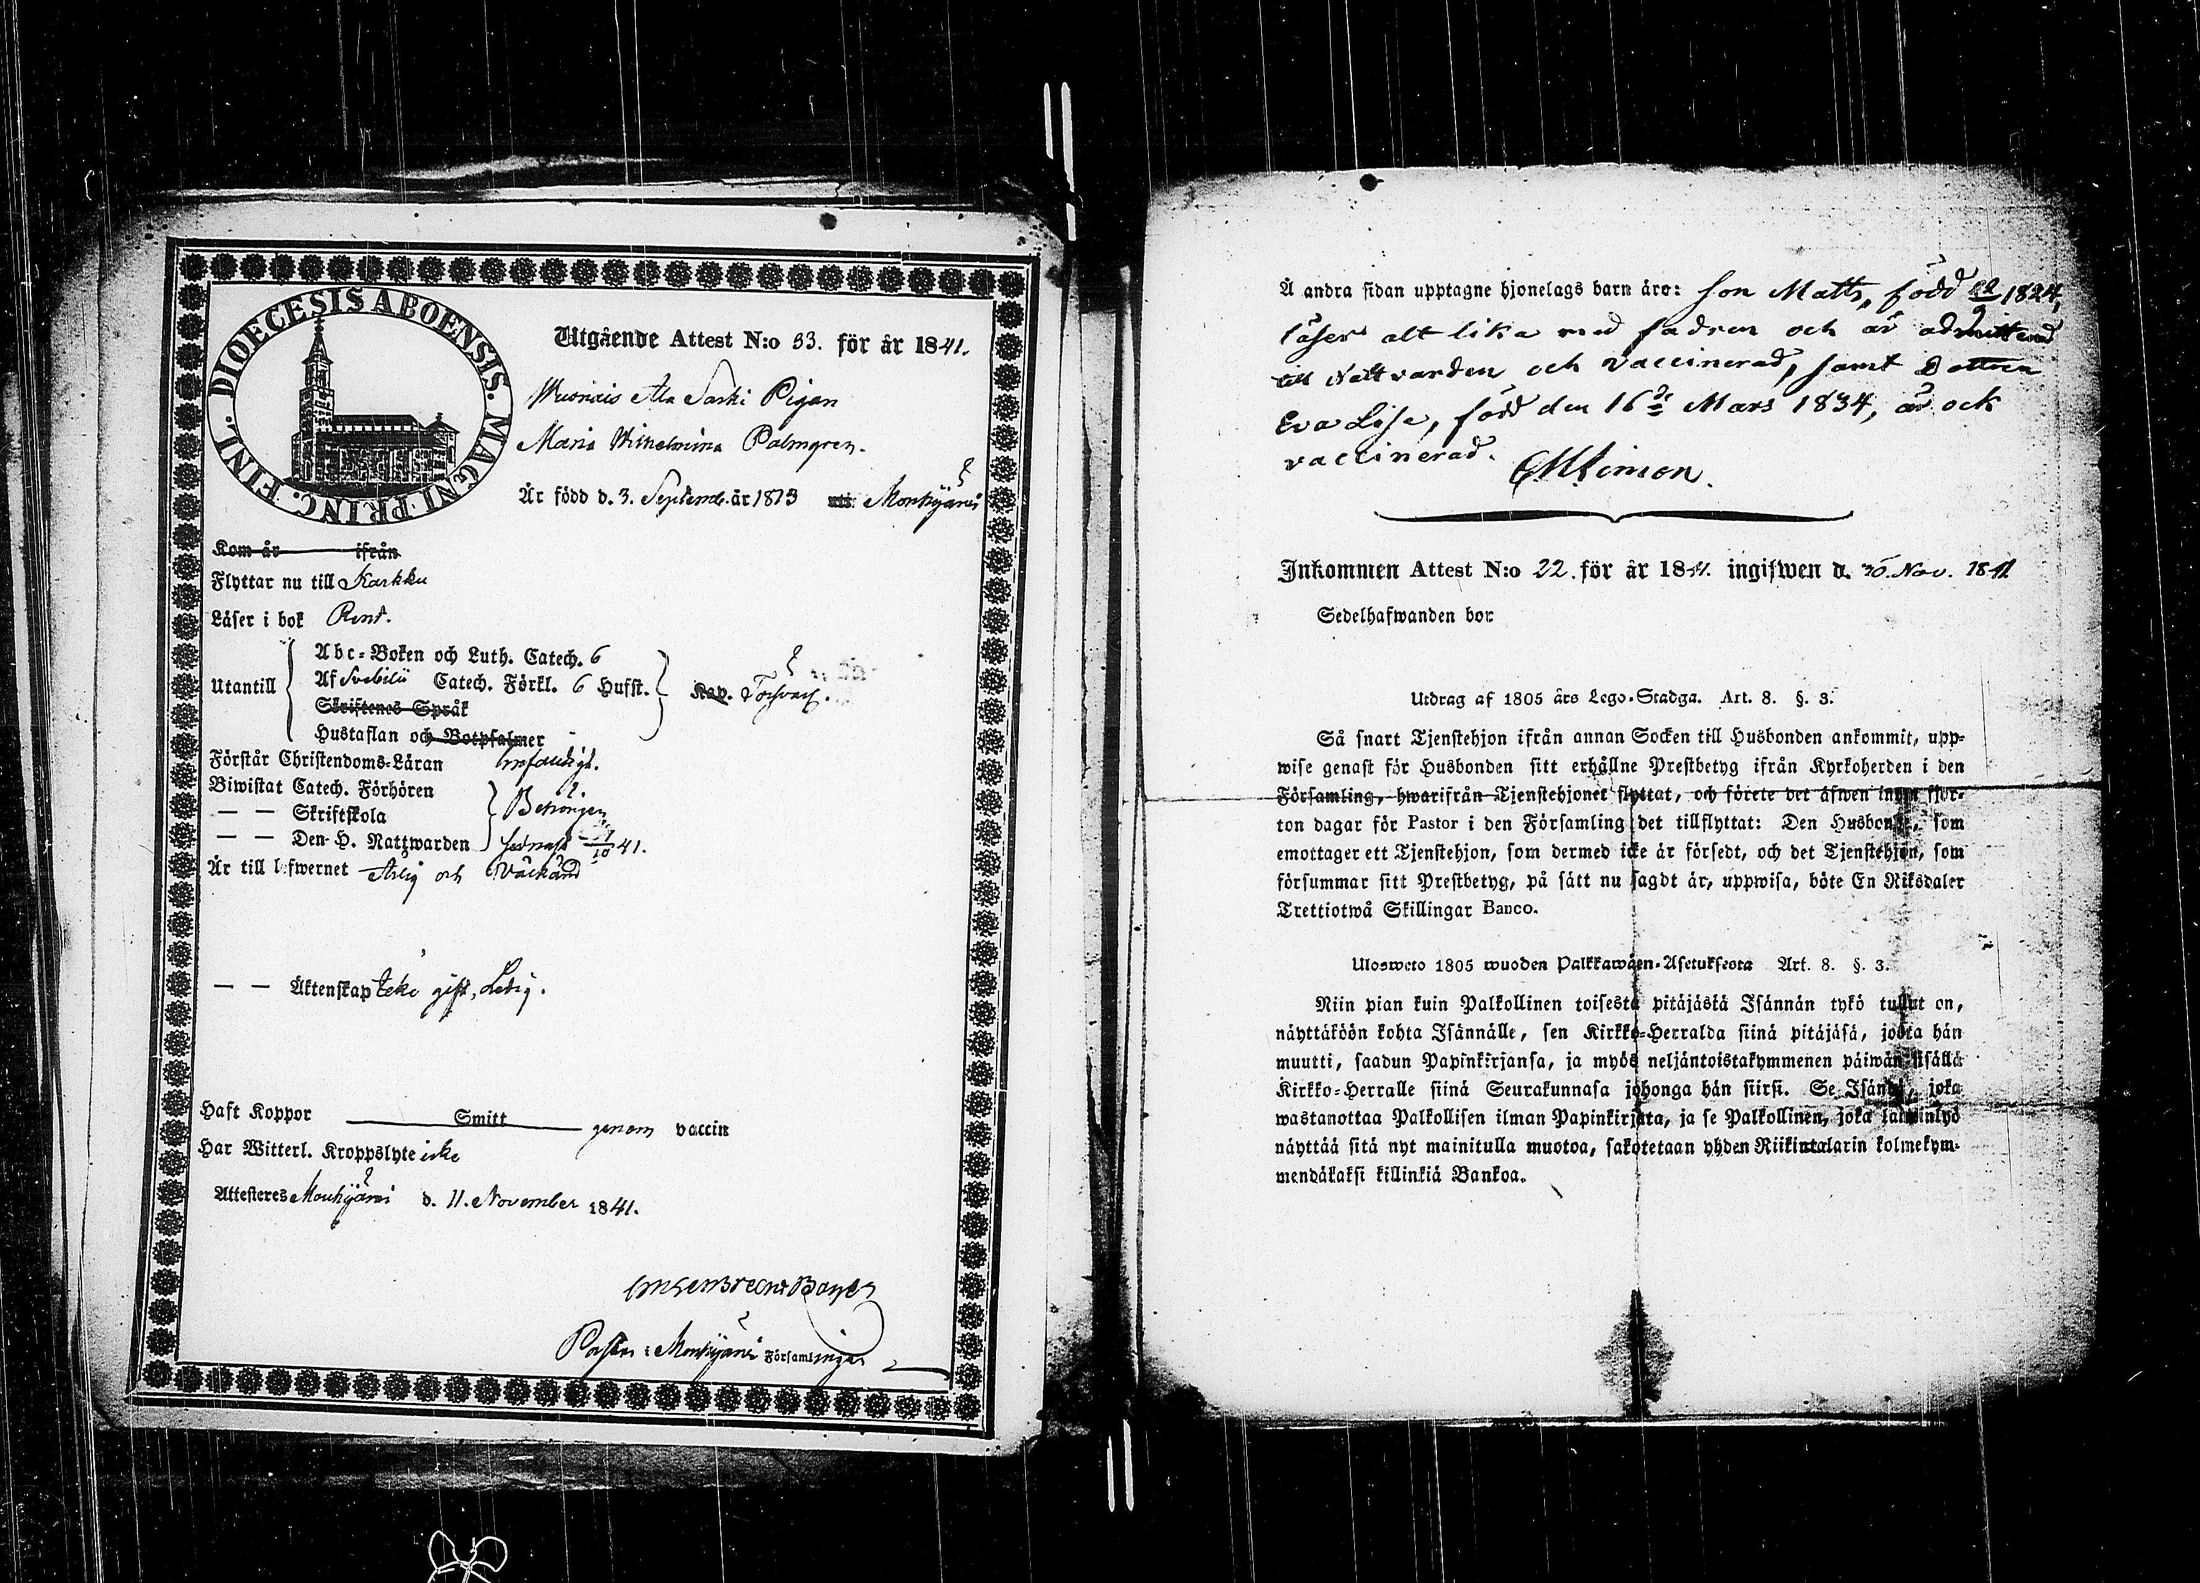 DIOECESIS ABOENSIS. MAGNI PRINC. FINL.
Utgående Attest N:o 33. för år 1841.
Pigan
Maria Wilhelmina Palmgren.
Är född d. 3. Septemb. år 1813 uti Mouhijärvi
Kom år ifrån
Flyttar nu till Karkku
Läser i bok Rent.
Utantill
Abc-Boken och Luth. Catech. 6
Af Svebilii Catech. Förkl. 6 Hufst. Kap. Försvarl.
Skriftenes Språk
Hustaflan och Botpsalmer
Förstår Christendoms-Läran Enfaldigt.
Biwistat Catech. Förhören
— — Skriftskola Behörigen
— — Den H. Nattwarden senast 41.
Är till lefwernet Ärlig och
— — Äktenskap Icke gift, Ledig.
Haft Koppor Smitt genom vaccin
Har Witterl. Kroppslyte icke
Attesteras Mouhijärvi d. 11. November 1841.
Pastor i Mouhijärvi Församlingar
Å andra sidan upptagne hjonelags barn äro: son Matts, född 1824,
läser allt lika med fadren och är admitterad
till Nattvarden och vaccinerad, samt Dottren
Eva Lisa, född den 16de Mars 1834, är ock
vaccinerad.
Inkommen Attest N:o 22. för år 1841. ingifwen d. 30. Nov. 1841
Sedelhafwanden bor
Utdrag af 1805 års Lego-Stadga. Art. 8. §. 3.
Så snart Tjenstehjon ifrån annan Socken till Husbonden ankommit, upp-
wise genast för Husbonden sitt erhållne Prestbetyg ifrån Kyrkoherden i den
Församling, hwarifrån Tjenstehjonet flyttat, och förete det äfwen innom fjor-
ton dagar för Pastor i den Församling det tillflyttat: Den Husbonde, som
emottager ett Tjenstehjon, som dermed icke är försedt, och det Tjenstehjon, som
försummar sitt Prestbetyg, på sätt nu sagdt är, uppwisa, böte En Riksdaler
Trettiotwå Skillingar Banco.
Ulosweto 1805 wuoden Palkkawäen-Asetuksesta Art. 8. §. 3.
Niin pian kuin Palkollinen toisesta pitäjästä Isännän tykö tullut on,
näyttäköön kohta Isännälle, sen Kirkko-Herralda siinä pitäjäsä, josta hän
muutti, saadun Papinkirjansa, ja myös neljäntoistakymmenen päiwän sisällä
Kirkko-Herralle siinä Seurakunnasa johonga hän siirsi. Se Isändä, joka
wastanottaa Palkollisen ilman Papinkirjata, ja se Palkollinen, joka laiminlyö
näyttää sitä nyt mainitulla muotoa, sakotetaan yhden Riikintalarin kolmekym-
mendäkaksi killinkiä Bankoa.